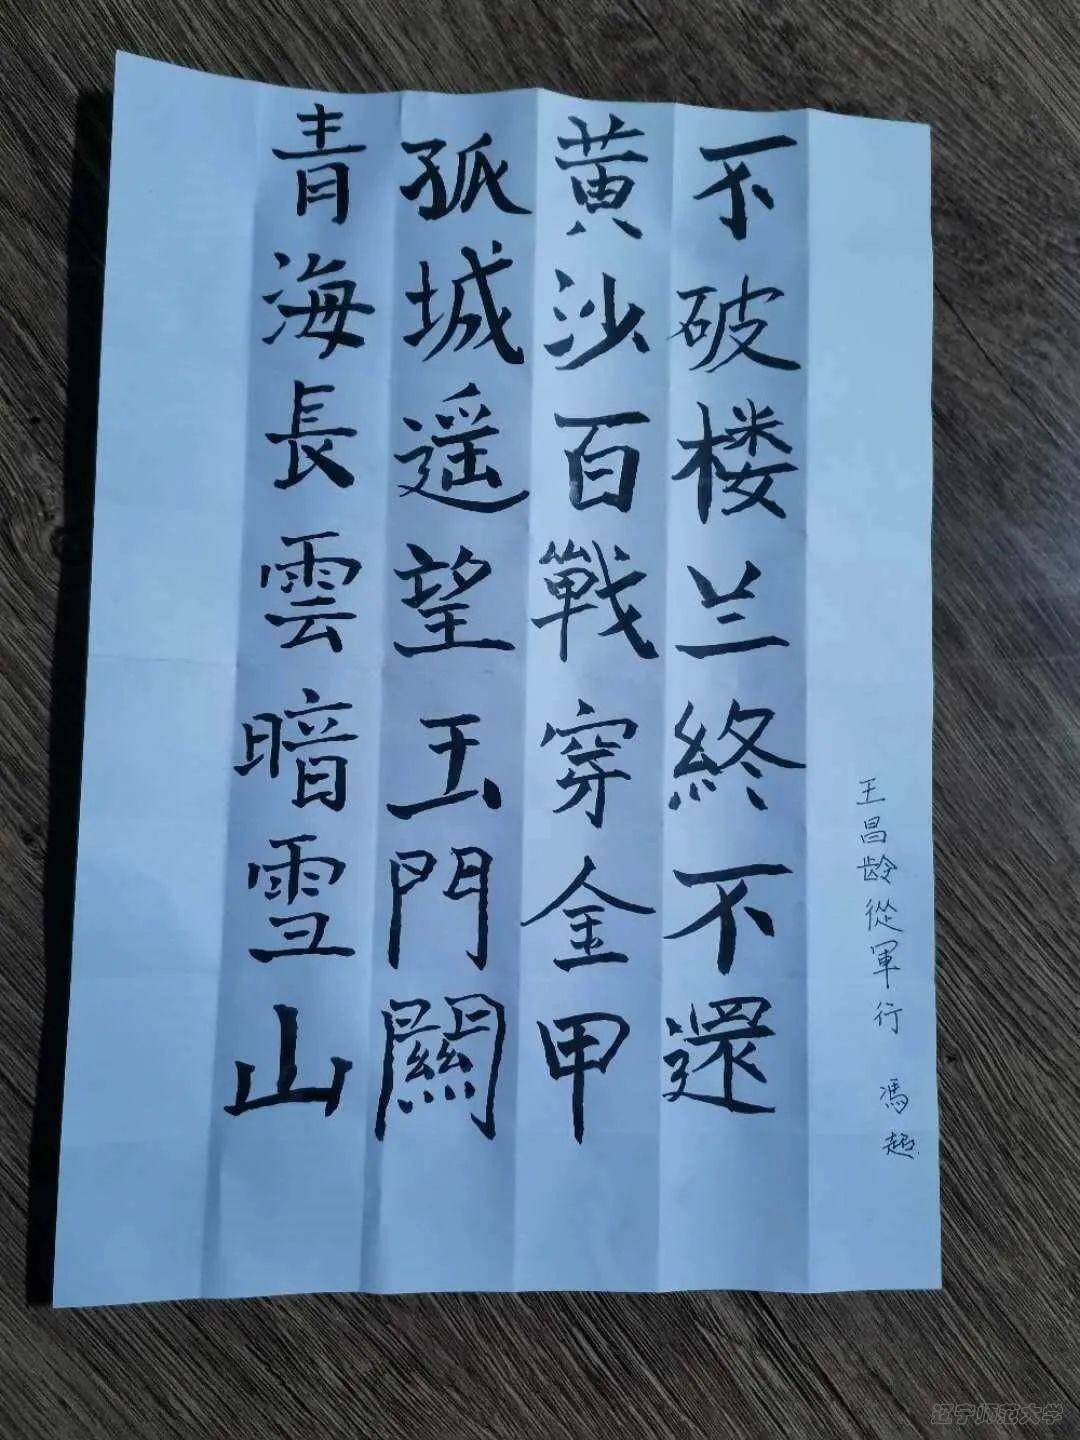 青海長雲暗雪山
孤城遥望玉門關
黄沙百戰穿金甲
不破楼兰終不還
王昌龄從軍行 馮超
辽宁师范大学